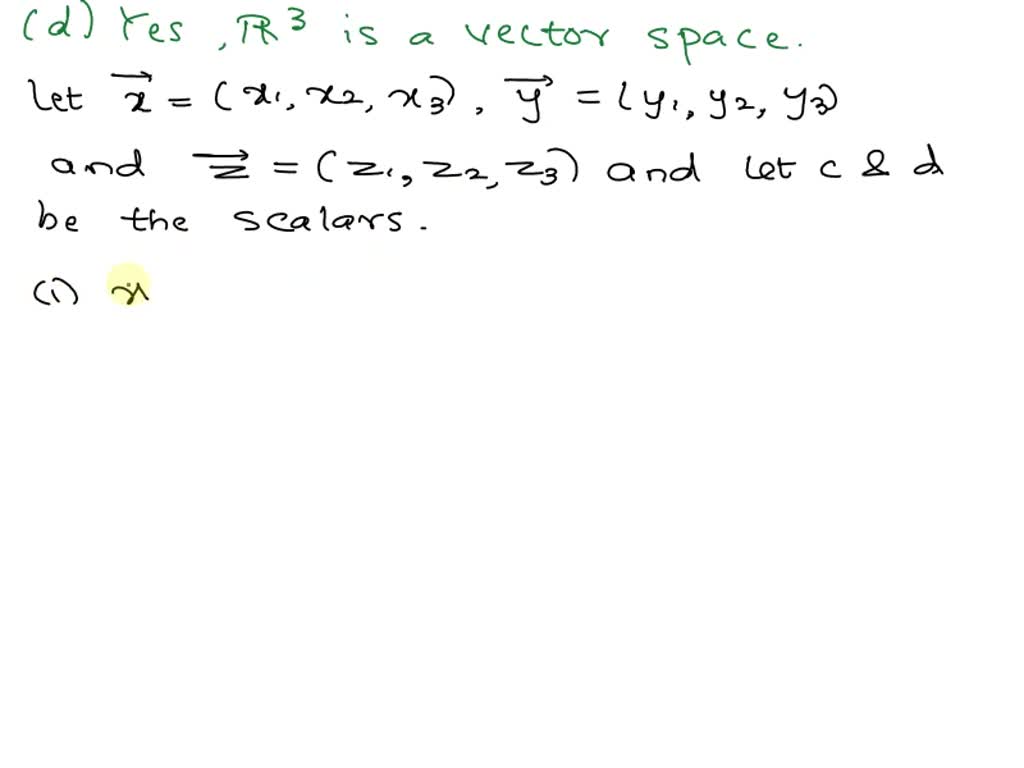 (d) Yes, ℝ³ is a vector space.
Let x⃗ = (x₁, x₂, x₃), y⃗ = (y₁, y₂, y₃)
and z⃗ = (z₁, z₂, z₃) and let c & d
be the scalars.
(i) x